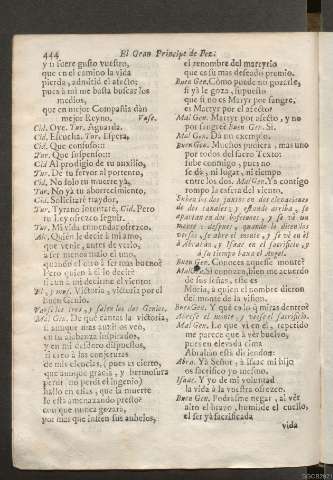 444
El Gran Principe de Fez.
y si fuere gusto vuestro,
que en el camino la vida
pierda, admitid el afecto:
pues à mi me basta buscar los
medios,
que en mejor Compañia dàn
mejor Reyno. Vase.
Cid. Oye. Tur. Aguarda.
Cid. Escucha. Tur. Espera,
Cid. Que confuso!
Tur. Que suspenso!
Cid. Al prodigio de tu auxilio,
Tur. De tu fervor al portento,
Cid. No solo tu muerte yà,
Tur. No yà tu aborrecimiento,
Cid. Solicitarè traydor,
Tur. Tyrano intentarè, Cid. Pero
tu Ley ofrezco seguir.
Tur. Mi vida enmendar ofrezco.
Alc. Quien le decir à mi amo,
que venie, antes de verlo,
à ser menos malo el uno,
quando el otro à ser mas bueno?
Pero quien à èl lo decirè
si aun à mi decirme el viento:
El, y mus. Victoria, victoria por el
buen Genio.
Vanse los tres, y salen los dos Genios.
Mal Gen. De què cantas la victoria,
si aunque mas auxilios veo,
en tu alabanza inspirados,
y en mi desdoro dispuestos,
si creo à las conjeturas
de mis ciencias, (pues es cierto,
que aunque gracia, y hermosura
perdì no perdì el ingenio)
hallo en ellas, que su muerte
le està amenazando presto?
con que nunca gozarà,
por mas que insten sus anhelos,
el renombre del martyrio
que es su mas deseado premio.
Buen Gen. Como puede no gozarle,
si yà le goza, supuesto
que si no es Martyr por sangre,
es Martyr por el afecto?
Mal Gen. Martyr por afecto, y no
por sangre? Buen Gen. Si.
Mal Gen. Dà un exemplo.
Buen Gen. Muchos pudiera, mas uno
por todos del sacro Texto:
sube conmigo, pues no
se dà, ni lugar, ni tiempo
entre los dos. Mal Gen. Yà contigo
rompo la esfera del viento.
Suben los dos juntos en dos elevaciones
de dos canales, y estando arriba, se
apartan en dos bofetones, y se và un
monte à despues, quando lo dicen los
versos, se abre el monte, y se vè en èl
à Abrahàn, y Isaac en el sacrificio, y
à su tiempo baxa el Angel.
Buen Gen. Conoces aquelle monte?
Mal Gen. Si conozco, bien me acuerdo
de sus señas, este es
Moria, à quien el nombre dieron
del monte de la vision.
Buen Gen. Y què es lo q̃ miras dentro?
Abrese el monte, y vese el sacrificio.
Mal Gen. Lo que vi en èl, repetido
me parece que à vèr buelvo,
pues en elevada cima
Abrahan està diciendo:
Abra. Yà Señor, à Isaac mi hijo
os sacrifico yo mesmo.
Isaac. Y yo de mi voluntad
la vida à la vuestra ofrezco.
Buen Gen. Podràsme negar, al vèr
alto el brazo, humilde el cuello,
el ser yà sacrificada
vida